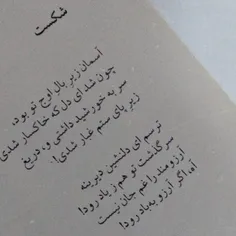 شکست
آسمان زیر بال اوج تو بود،
چون شد ای دل که خاکسار شدی
سر به خورشید داشتی و، دریغ
زیر پای ستم غبار شدی!
ترسم ای دلنشین دیرینه
سرگذشت تو هم ز یاد رود!
آرزومند را غم جان نیست
آه، اگر آرزو به باد رود!